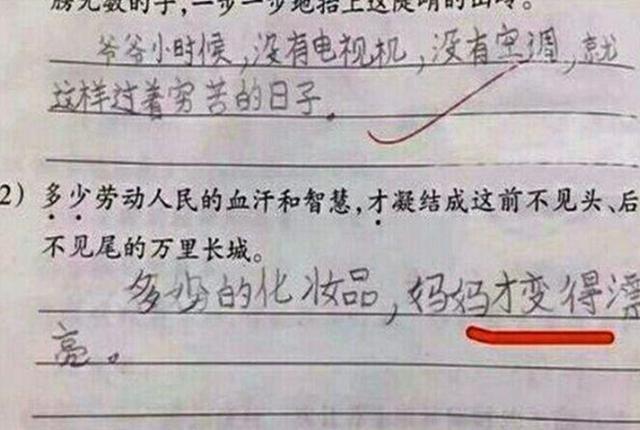 膀无数的手,一步一步地抬上这陡峭的山岭。
爷爷小时候,没有电视机,没有空调,就
这样过着穷苦的日子.
2) 多少劳动人民的血汗和智慧,才凝结成这前不见头、后
不见尾的万里长城。
多少的化妆品,妈妈才变得漂
亮。